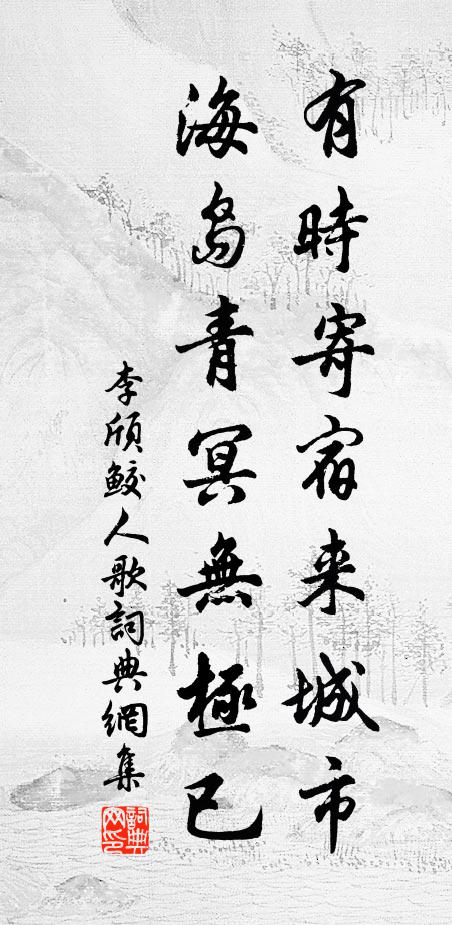 有時寄宿来城市
海島青冥無極已
李頎鲛人歌詞典網集
詞典網印